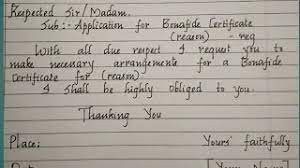 Respected Sir/Madam.
Sub:- Application for Bonafide Certificate
(reason) - reg
With all due respect I request you to
make necessary arrangements for a Bonafide
Certificate for (reason)
I shall be highly obliged to you.
Thanking You
Place: Yours' faithfully